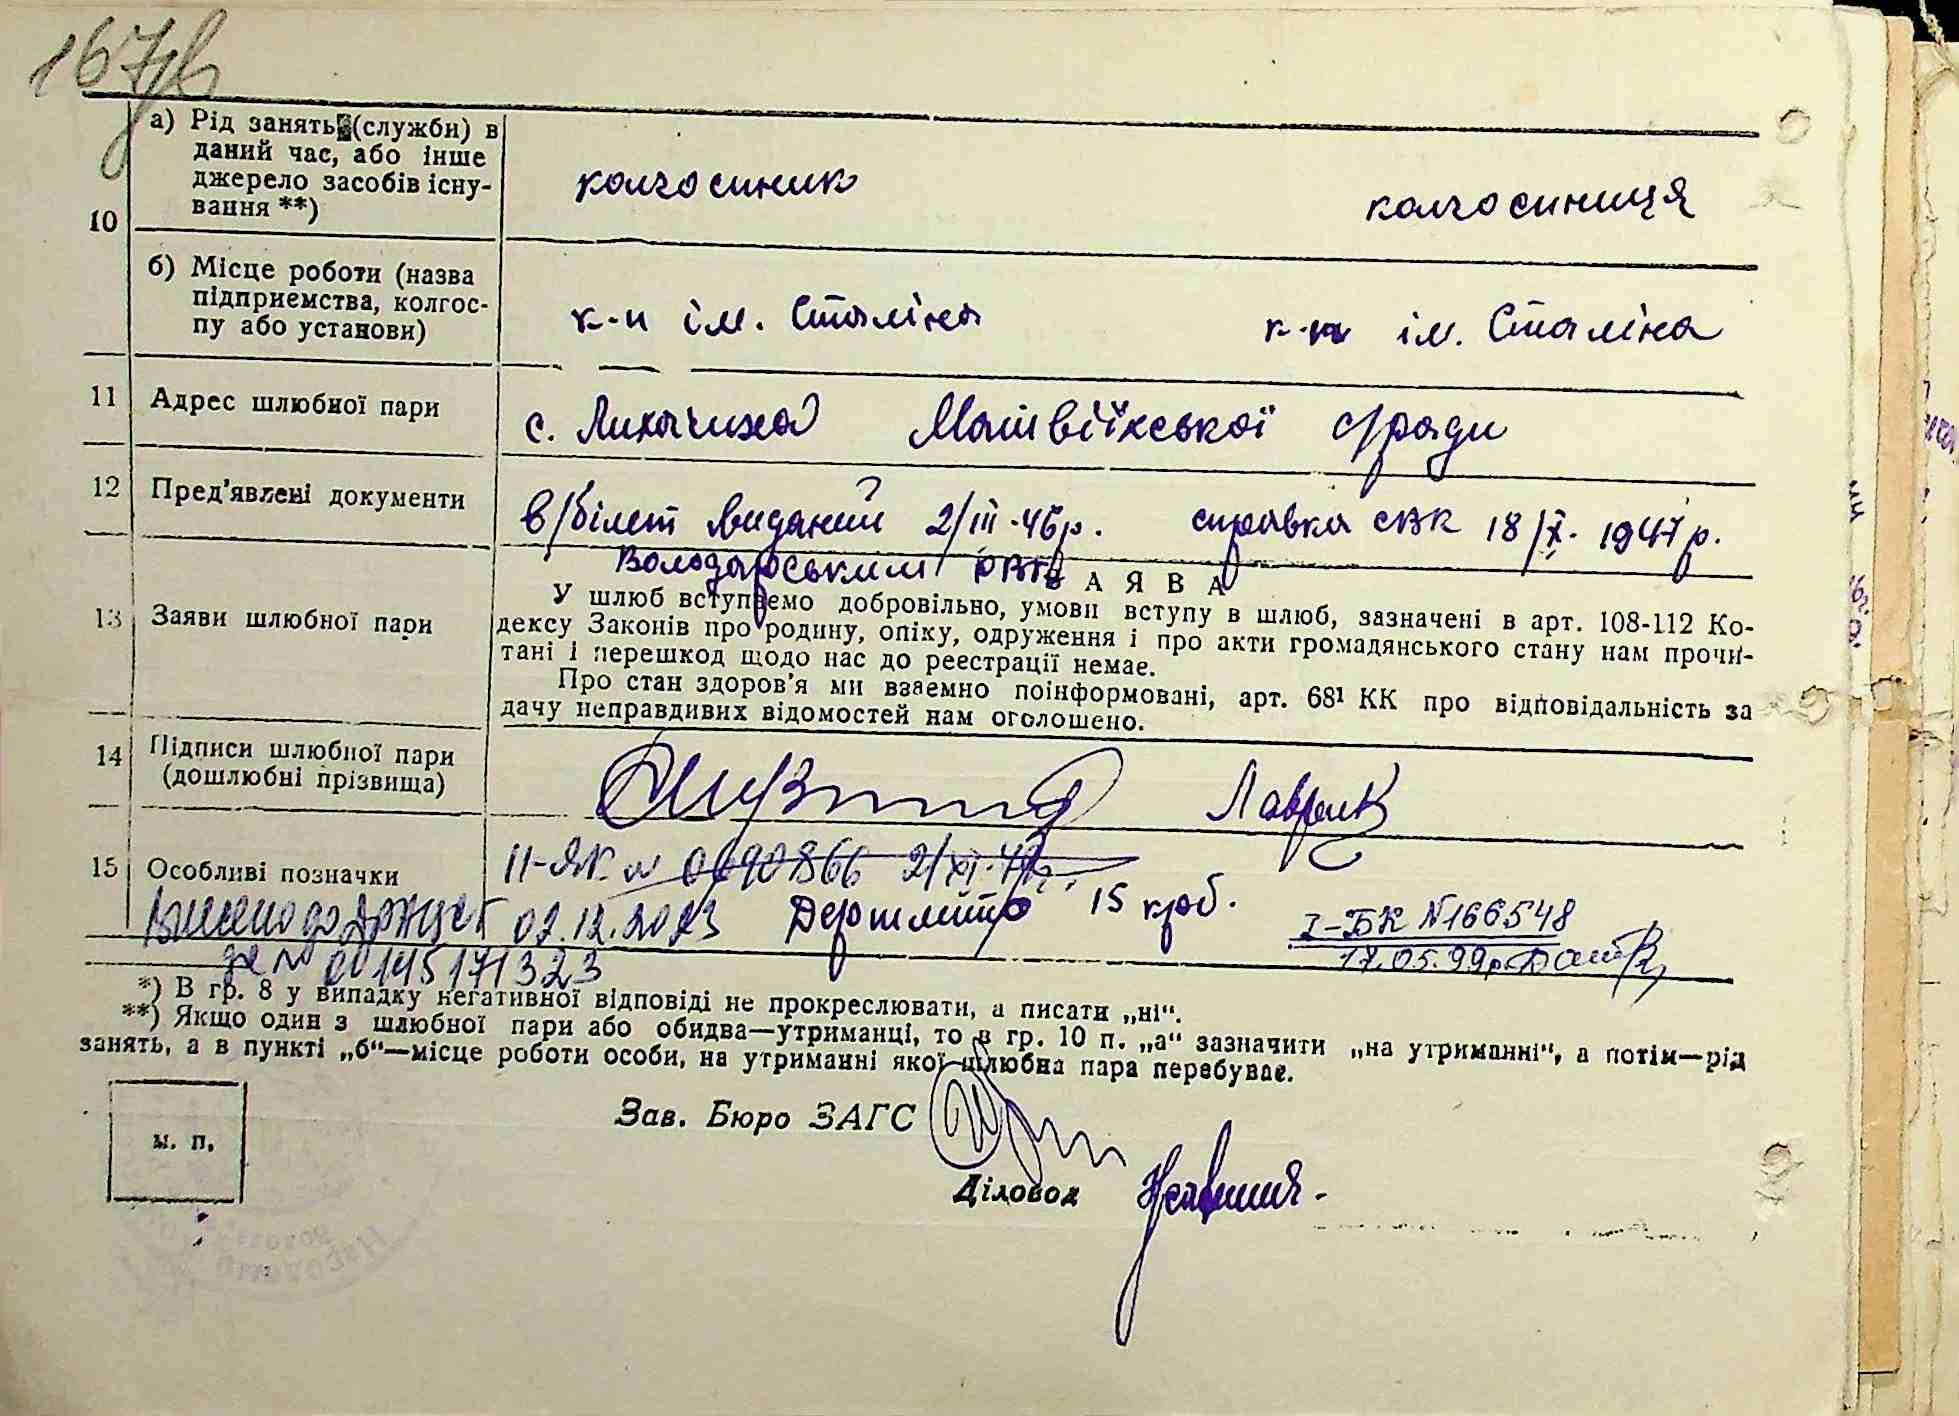 167зв
а) Рід занять (служби) в
даний час, або інше
джерело засобів існу-
вання **)
колгоспник
колгоспниця
10
б) Місце роботи (назва
підприємства, колгос-
пу або установи)
к-п ім. Сталіна
к-п ім. Сталіна
11 Адрес шлюбної пари
с. Лихачиха Матвіївської с/ради
12 Пред'явлені документи
в/білет виданий 2/III-46р. справка СВК 18/X. 1947р.
Володарським РВК
ЗАЯВА
13 Заяви шлюбної пари
У шлюб вступаемо добровільно, умови вступу в шлюб, зазначені в арт. 108-112 Ко-
дексу Законів про родину, опіку, одруження і про акти громадянського стану нам прочи-
тані і перешкод щодо нас до реєстрації немає.
Про стан здоров'я ми взаємно поінформовані, арт. 68¹ КК про відповідальність за
дачу неправдивих відомостей нам оголошено.
14 Підписи шлюбної пари
(дошлюбні прізвища)
Лаврик
15 Особливі позначки
II-ЯК № 0690866 2/XI-47р.
Внесено до ДРАЦСГ 02.12.2023 Держмито 15 крб.
I-БК №166548
за № 00145171323
17.05.99р.
*) В гр. 8 у випадку негативної відповіді не прокреслювати, а писати „ні“.
**) Якщо один з шлюбної пари або обидва—утриманці, то в гр. 10 п. „а“ зазначити „на утриманні“, а потім—рід
занять, а в пункті „б“—місце роботи особи, на утриманні якої шлюбна пара перебуває.
м. п.
Зав. Бюро ЗАГС
Діловод